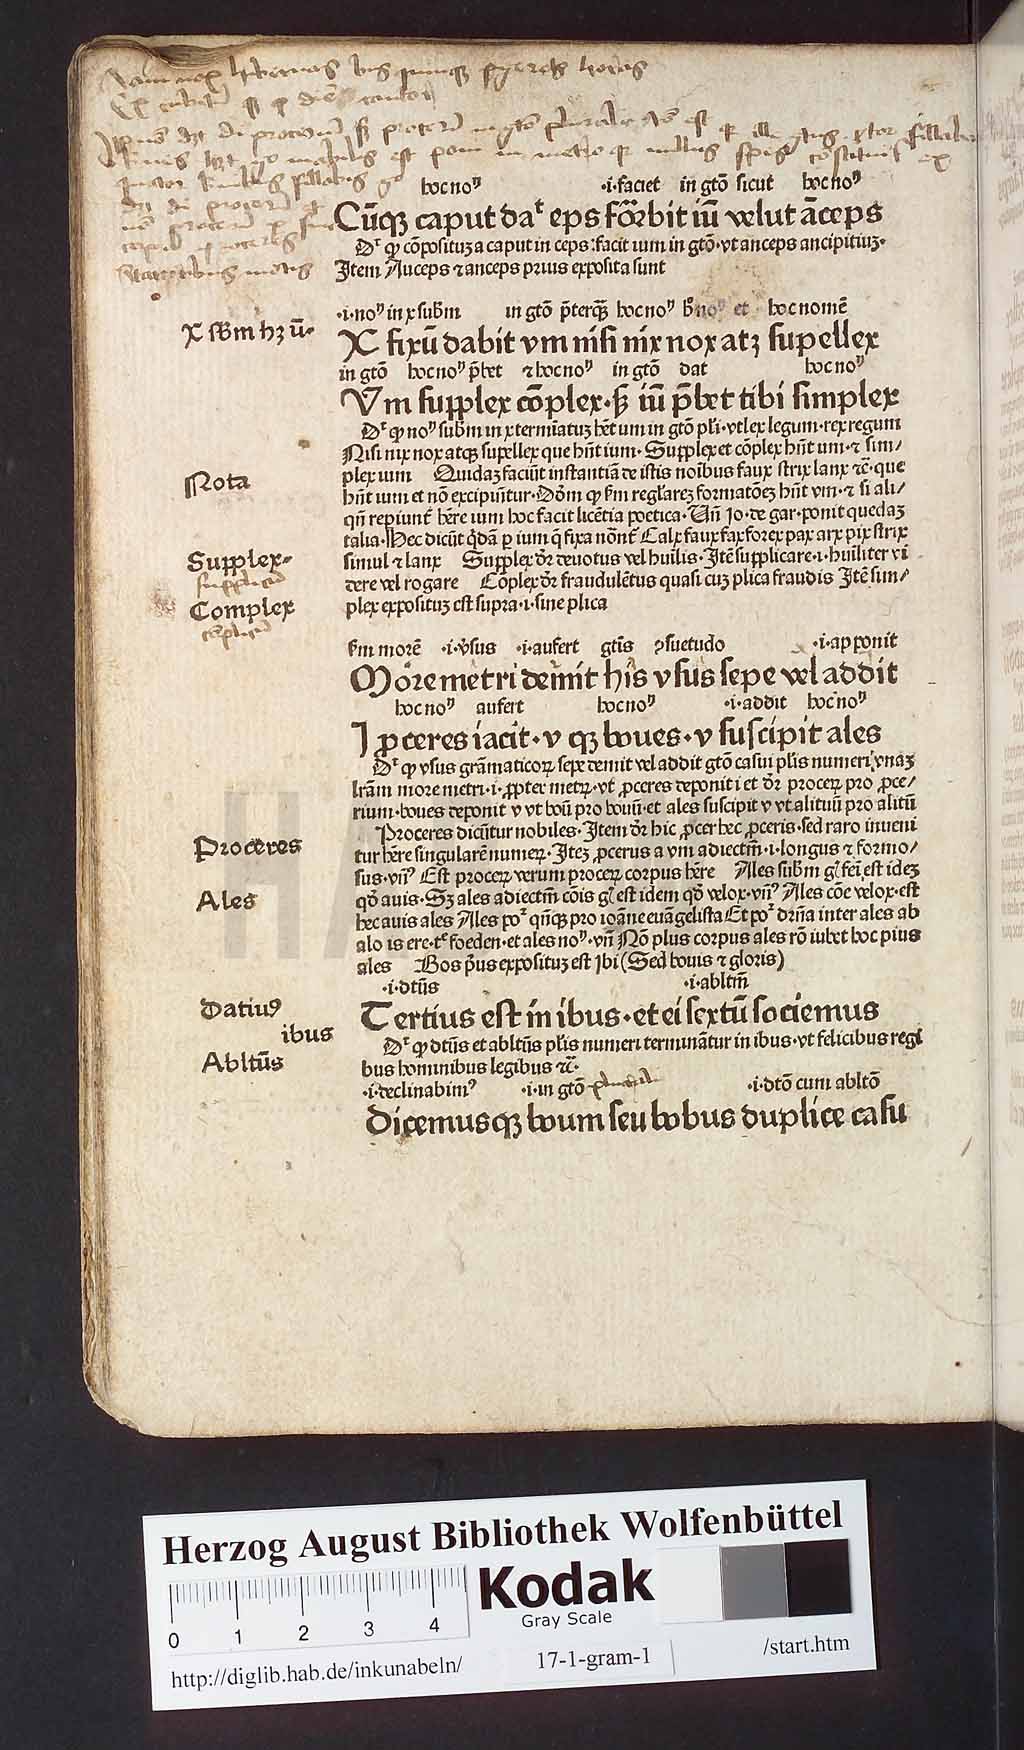 hoc noꝰ ·i·faciet in gtõ sicut hoc noꝰ
Cũqꝫ caput daᵗ eps formbit iũ velut ãceps
Dꝛ qꝙ cõpositũ a caput in ceps facit ium in gtõ·vt anceps ancipitiuꝫ·
Item Auceps ⁊ anceps prius exposita sunt
·i·noꝰ in x subꝫm in gtõ p̄terqꝫ hoc noꝰ hoc noꝰ et hoc nomẽ
X sbꝫm hꝫ ũ·
X fixũ dabit vm nisi nix nox atꝫ supellex
in gtõ hoc noꝰ p̃bet ⁊ hoc noꝰ in gtõ dat hoc noꝰ
Vm supplex cõplex·sꝫ iũ p̃bet tibi simplex
Dꝛ qꝙ noꝰ subꝫm in x terminatuꝫ hẽt um in gtõ pl̃i·vt lex legum·rex regum
Nisi nix nox atqꝫ supellex que hñt ium·Supplex et cõplex hñt um·⁊ sim/
Nota
plex ium Quidaꝫ faciũt instantiã de istis noĩbus faux strix lanx ⁊c̃·que
hñt ium et nõ excipiũtur·Dõm qꝙ sm̃ regl̃areꝫ formatõeꝫ hñt vm·⁊ si ali/
qñ repiunt̃ hẽre ium hoc facit licẽtia poetica·Uñ Io·de gar·ponit quedaꝫ
talia·Hec dicũt q̃dã p ium q̃ fixa nõnt̃ Calx faux fax forex pax arx pix strix
Supplex·
simul ⁊ lanx Supplex dꝛ deuotus vel huĩlis·Itẽ supplicare·i·huĩliter vi
supplicũ
dere vel rogare Cõplex dꝛ fraudulẽtus quasi cuꝫ plica fraudis Itẽ sim/
Complex
plex expositus est supra·i·sine plica
cõplicũ
sm̃ morẽ ·i·v̾sus ·i·aufert gtĩs ꝯsuetudo ·i·apponit
More metri demit his vsus sepe vel addit
hoc noꝰ aufert hoc noꝰ ·i·addit hoc noꝰ
I ꝓceres iacit·v qꝫ boues·v suscipit ales
Dꝛ qꝙ vsus grãmaticoꝝ sepe demit vel addit gtõ casui pl̃is numeri vnaꝫ
lr̃am more metri·i·ꝓpter metꝝ·vt ꝓceres deponit i et dꝛ proceꝝ pro ꝓce/
rium·boues deponit v vt boũ pro bouũ·et ales suscipit v vt alituũ pro alitũ
Proceres dicũtur nobiles·Item dꝛ hic ꝓcer hec ꝓceris·sed raro inueni
Proceres
tur hẽre singularẽ numeꝝ·Iteꝫ ꝓcerus a vm adiectm̃·i·longus ⁊ formo/
sus·vñꝰ Est proceꝝ verum proceꝝ corpus hẽre Ales subꝫm gl̃ fei est ideꝫ
Ales
qd̾ auis·Sꝫ ales adiectm̃ cõis gl̃ est idem qd̾ velox·vñꝰ Ales cõe velox·est
hec auis ales Ales poᵗ qñqꝫ pro ioãne euãgelista Et poᵗ dr̃na inter ales ab
alo is ere·tᵉ foeden·et ales noꝰ·vñ Nõ plus corpus ales rõ iubet hoc pius
ales Bos p̾us expositus est Ibi (Sed bouis ⁊ gloris)
·i·dtũs ·i·abltm̃
Datiuꝰ
Tertius est in ibus·et ei sextũ sociemus
ibus
Dꝛ qꝙ dtũs et abltũs pl̃is numeri terminãtur in ibus·vt felicibus regi
Abltũs
bus hominibus legibus ⁊c̃·
·i·declinabimꝰ ·i·in gtõ plurali ·i·dtõ cum abltõ
Dicemusqꝫ boum seu bobus duplice casu
Herzog August Bibliothek Wolfenbüttel
Kodak
Gray Scale
0 1 2 3 4
http://diglib.hab.de/inkunabeln/ 17-1-gram-1 /start.htm